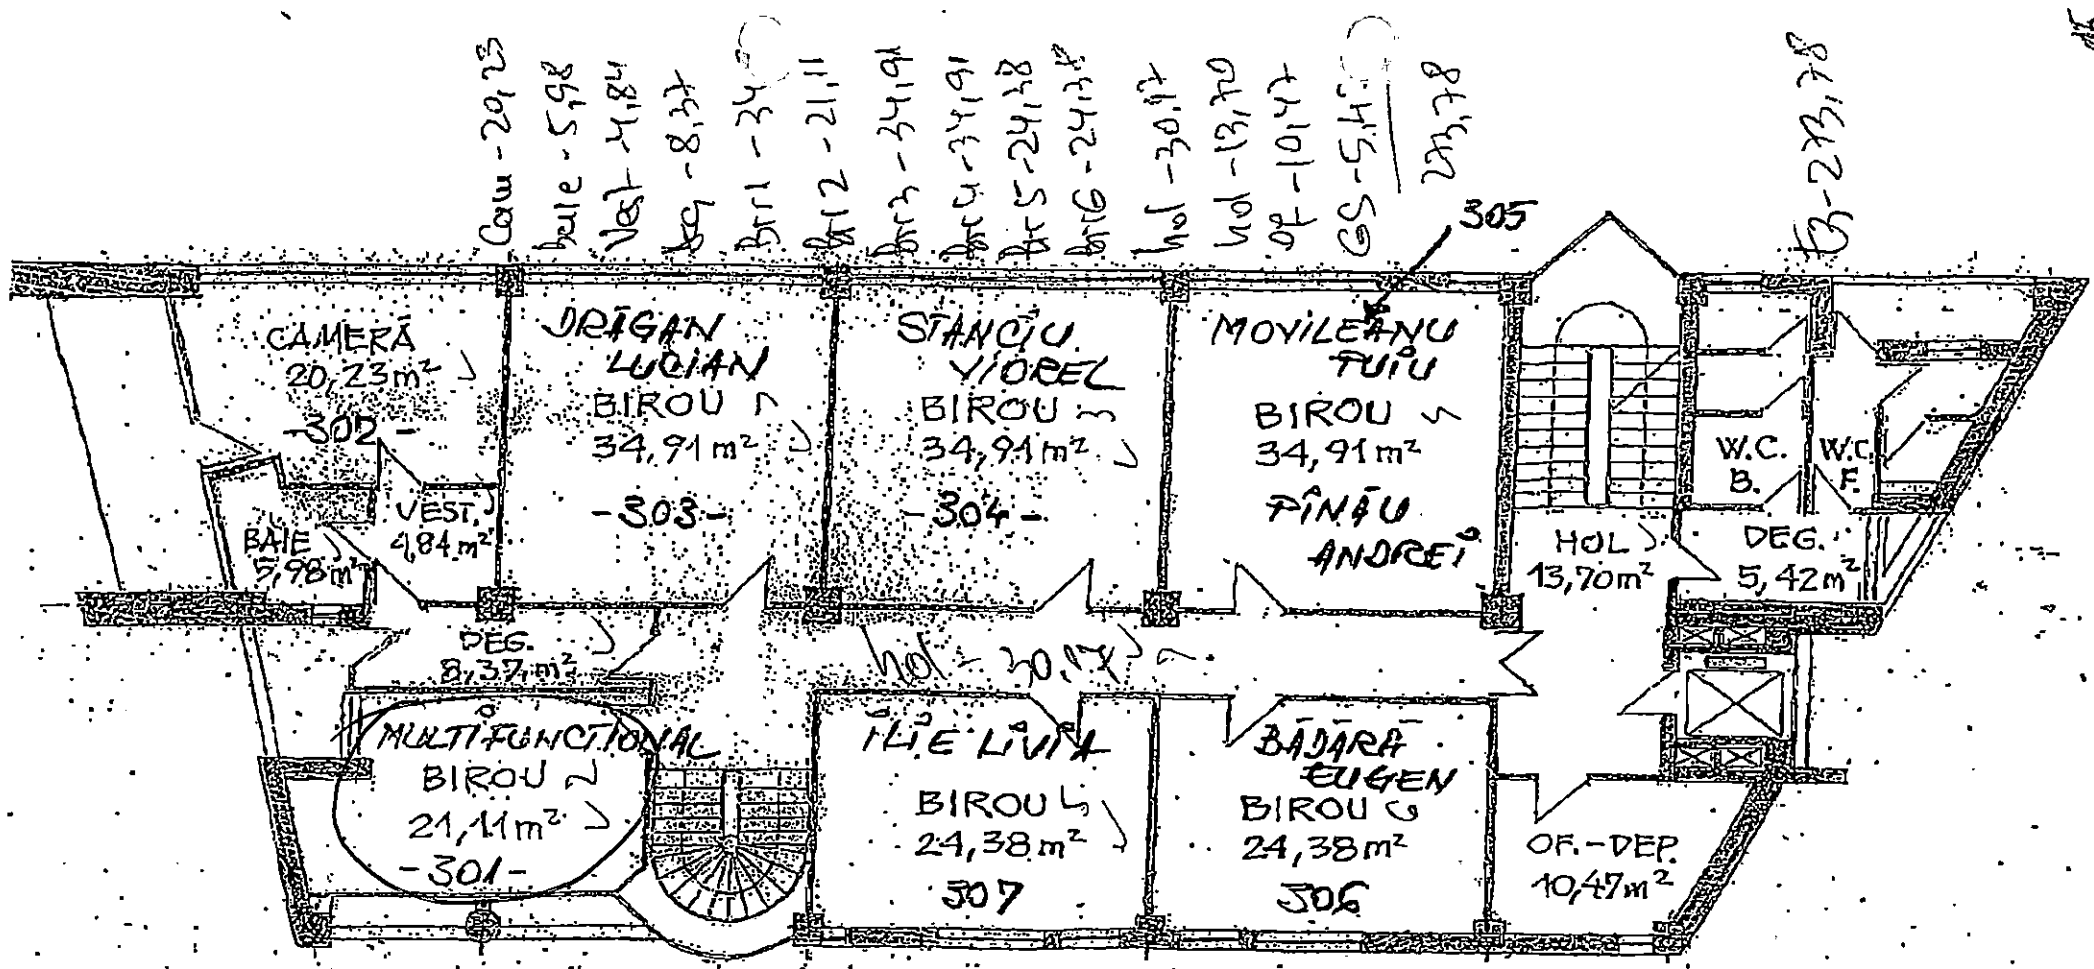 Cam - 20,23
baie - 5,98
Vest - 4,84
Deg - 8,37
Bir 1 - 34
Bir 2 - 21,11
Bir 3 - 34,91
Bir 4 - 34,91
Bir 5 - 24,38
Bir 6 - 24,38
hol - 30,17
hol - 13,70
Of - 10,47
GS - 5,4
273,78
273,78
305
CAMERĂ
20,23 m²
- 302 -
DRĂGAN
LUCIAN
BIROU
34,91 m²
- 303 -
STANCIU
VIOREL
BIROU
34,91 m²
- 304 -
MOVILEANU
PUIU
BIROU
34,91 m²
PÎNĂU
ANDREI
W.C.
B.
W.C.
F.
BAIE
5,98 m²
VEST.
4,84 m²
HOL
13,70 m²
DEG.
5,42 m²
DEG.
8,37 m²
hol - 30,17
MULTIFUNCTIONAL
BIROU
21,11 m²
- 301 -
ILIE LIVIA
BIROU
24,38 m²
307
BĂDĂRĂ
EUGEN
BIROU
24,38 m²
306
OF.-DEP.
10,47 m²